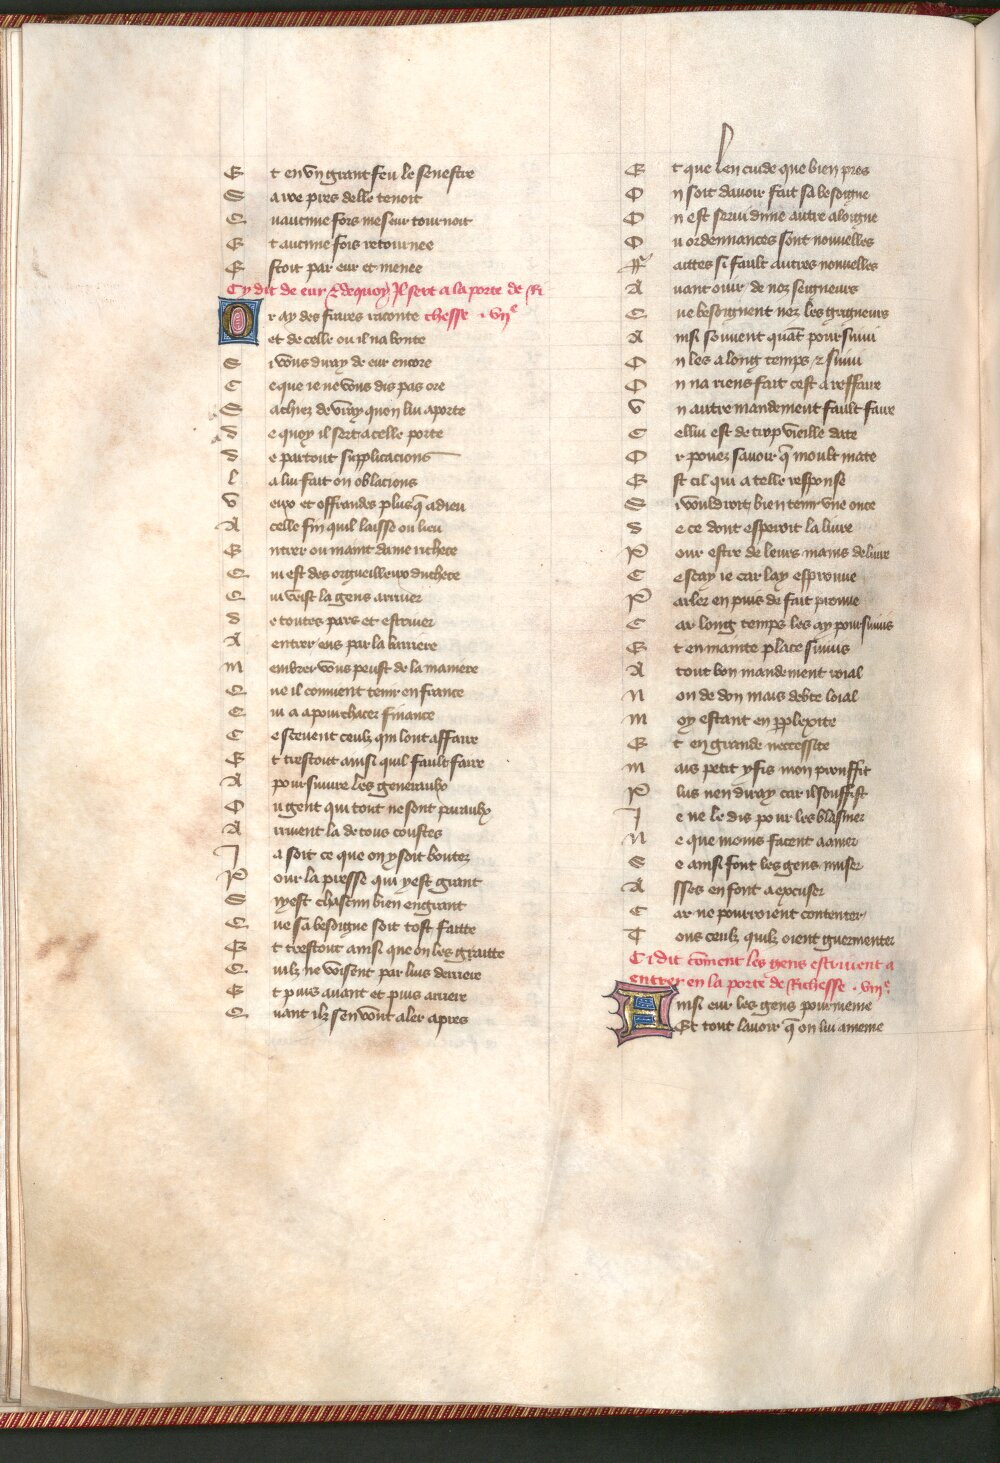 Et en vn grant feu le senestre
Satve pres delle tenoit
Cuaucune fors meseur tournoit
Et aucune fois retournee
Estoit par eur et menee
Cy dit de eur & dequoy Il sert a la porte de Ri
Or ay des freres raconte chesse . vije
et de celle ou il na bonte
Si vous diray de eur encore
Ce que ie ne vous dis pas ore
Sachiez de vray quon luy aporte
de quoy il sert a celle porte
de partout supplicacions
la lui fait on oblacions
Veux et offrandes plusq̄ a dieu
A celle fin quil laisse ou lieu
Entrer ou maint dame richece
Qui est des orgueilleux duchece
Qui voist la gens arriuer
de toutes pars et estriuer
A entrer ens par la barriere
membrer vous peust de la maniere
Que il conuient tenir en france
Qui a a pourchacer finance
Ce sceuent ceulx qui lont affaire
Et trestout ainsi quil fault faire
A poursuiure les generaulx
Ou gent qui tout ne sont puraulx
Arriuent la de tous coustes
Ja soit ce que on y soit boutez
Pour la presse qui y est grant
Sy est chascun bien engrant
Que sa besoigne soit tost faitte
Et trestout ainsi que on les graitte
Quilz ne voisent par luis derriere
Et puis auant et puis arriere
Quant ilz sen vont aler apres
Et que len cuide que bien pres
On soit dauoir fait sa besoigne
On est serui dune autre aloigne
Ou ordennances sont nouuelles
Faittes si fault autres nouuelles
Auant ouir de noz seigneurs
Que besoignent nez les greigneurs
Ainsi souuent quāt poursuiui
On les a long temps & suiui
On na riens fait cest a reffaire
Vn autre mandement fault faire
Cellui est de trop vieille date
Or pouez sauoir q̄ moult mate
Est cil qui a telle response
Si vouldroit bien tenir vne once
de ce dont esperoit la liure
Pour estre de leurs mains deliure
Ce scay ie car lay esprouue
Parler en puis de fait prouue
Car long temps les ay poursuiuis
Et en mainte place suiuis
A tout bon mandement roial
Non de don mais debte loial
Moy estant en p̱plexite
Et en grande neccessite
Mais petit y fis mon prouffit
Plus nen diray car il souffist
Je ne le dis pour les blasmer
Ne que moins facent a amer
Se ainsi font les gens muser
Asses en font a excuser
Car ne pourroient contenter
Tous ceulx quilz oient guermenter
Ci dit cōment les gens estriuent a
entrer en la porte de Richesse . viije.
Ainsi eur les gens pourmeine
Et tout lauoir q̄ on lui ameine